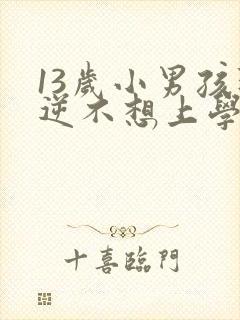 13歲小男孩
逆不想上學
十喜臨門